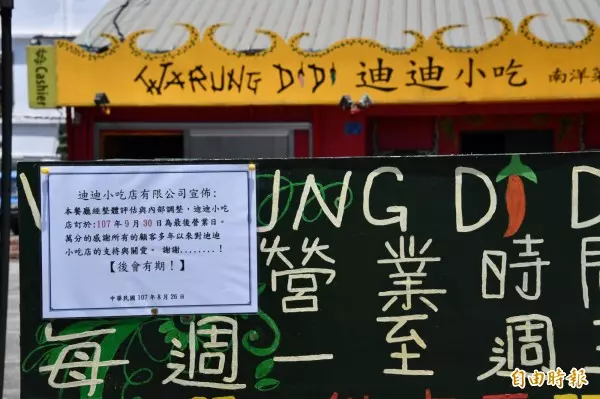 Cashier
WARUNG DiDi 迪迪小吃 南洋菜
UNG DiD
迪迪小吃店有限公司宣佈：
本餐廳經整體評估與內部調整，迪迪小吃
店訂於:107 年 9 月 30 日為最後營業日。
萬分的感謝所有的顧客多年以來對迪迪
小吃店的支持與關愛。 謝謝........!
【後會有期！】
中華民國 107 年 8 月 26 日
營業時間
每週一至週
自由時報